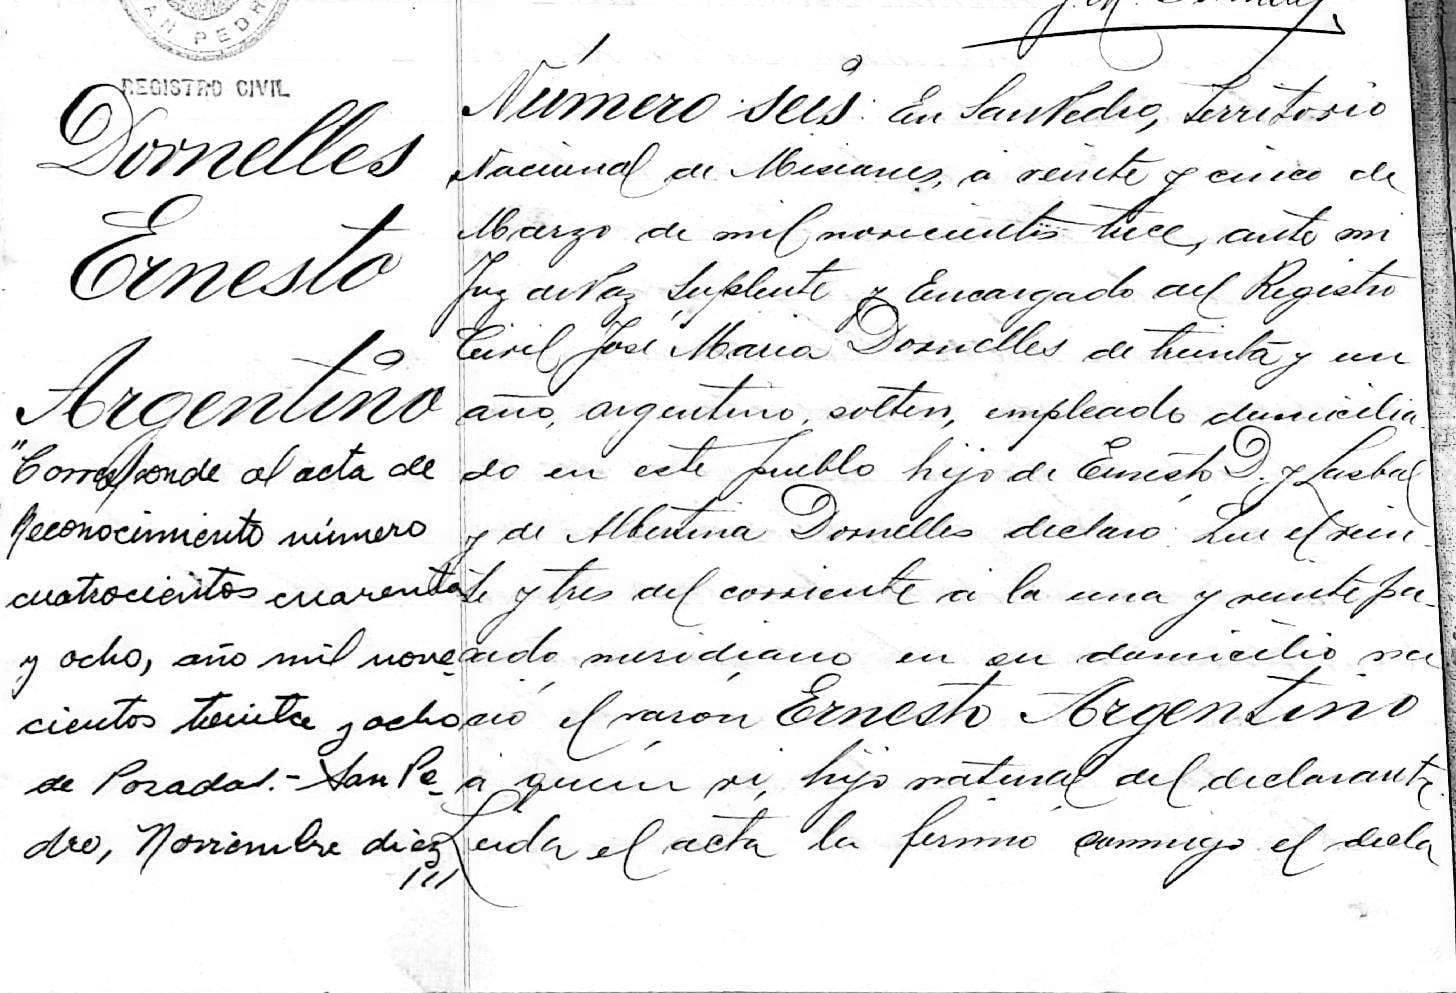 SAN PEDR
REGISTRO CIVIL
Dornelles
Ernesto
Argentino
"Corresponde al acta de
Reconocimiento número
cuatrocientos cuarenta
y ocho, año mil nove-
cientos treinta y ocho
de Posadas.- San Pe-
dro, Noviembre diez
///
Número seis: En San Pedro, Territorio
Nacional de Misiones, á veinte y cinco de
Marzo de mil novecientos trece, ante mi
Juez de Paz Suplente y Encargado del Registro
Civil, José Maria Dornelles de treinta y un
año, argentino, soltero, empleado domicilia-
do en este pueblo hijo de Ernesto D. y
y de Albertina Dornelles declaro: Que el vein-
te y tres del corriente á la una y veinte pa-
sado meridiano en su domicilio na
ció el varón Ernesto Argentino
á quien ví, hijo natural del declarante.
Leida el acta la firmó conmigo el decla